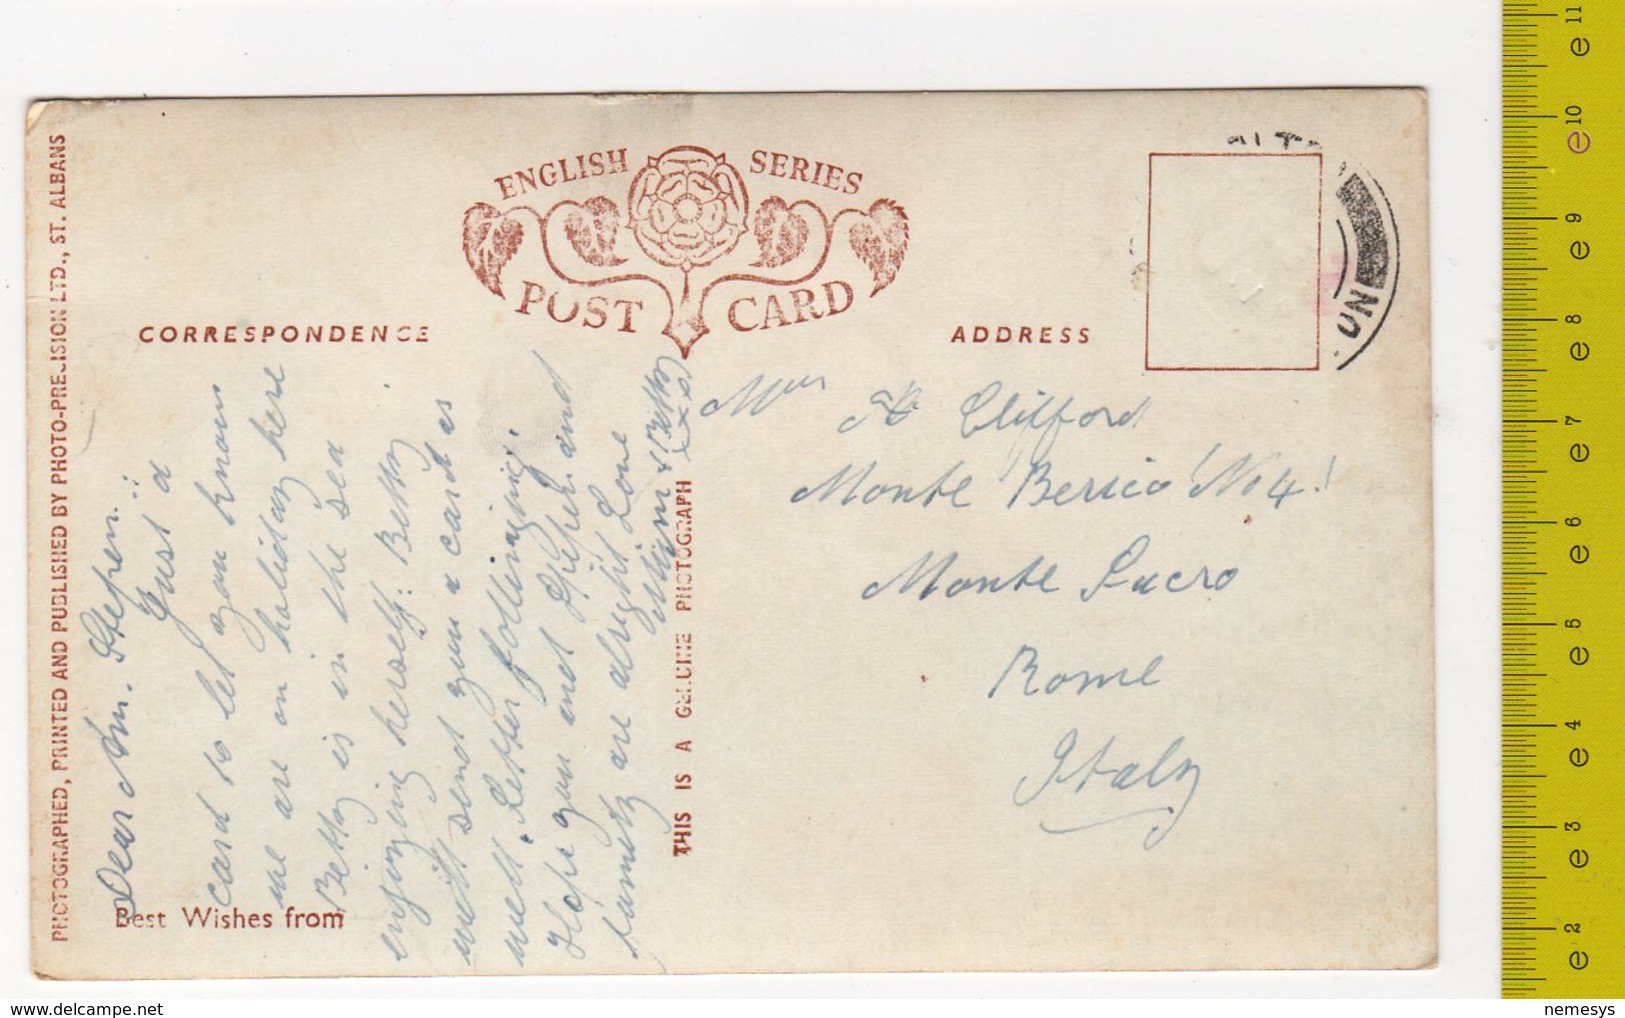 PHOTOGRAPHED, PRINTED AND PUBLISHED BY PHOTO-PRECISION LTD., ST. ALBANS
ENGLISH SERIES
POST CARD
CORRESPONDENCE
ADDRESS
Dear Stepen:
Just a
card to let you know
we are on holiday here
Betty is in the sea
enjoying herself: Betty
will send you a card as
well. Letter following.
Hope you and and
family are alright Love
& Betty
xxx
Best Wishes from
THIS IS A GENUINE PHOTOGRAPH
Clifford
Monte Berico No 4!
Monte Sacro
Rome
Italy
UN
2
3
4
5
6
7
8
9
10
11
nemesys
delcampe.net